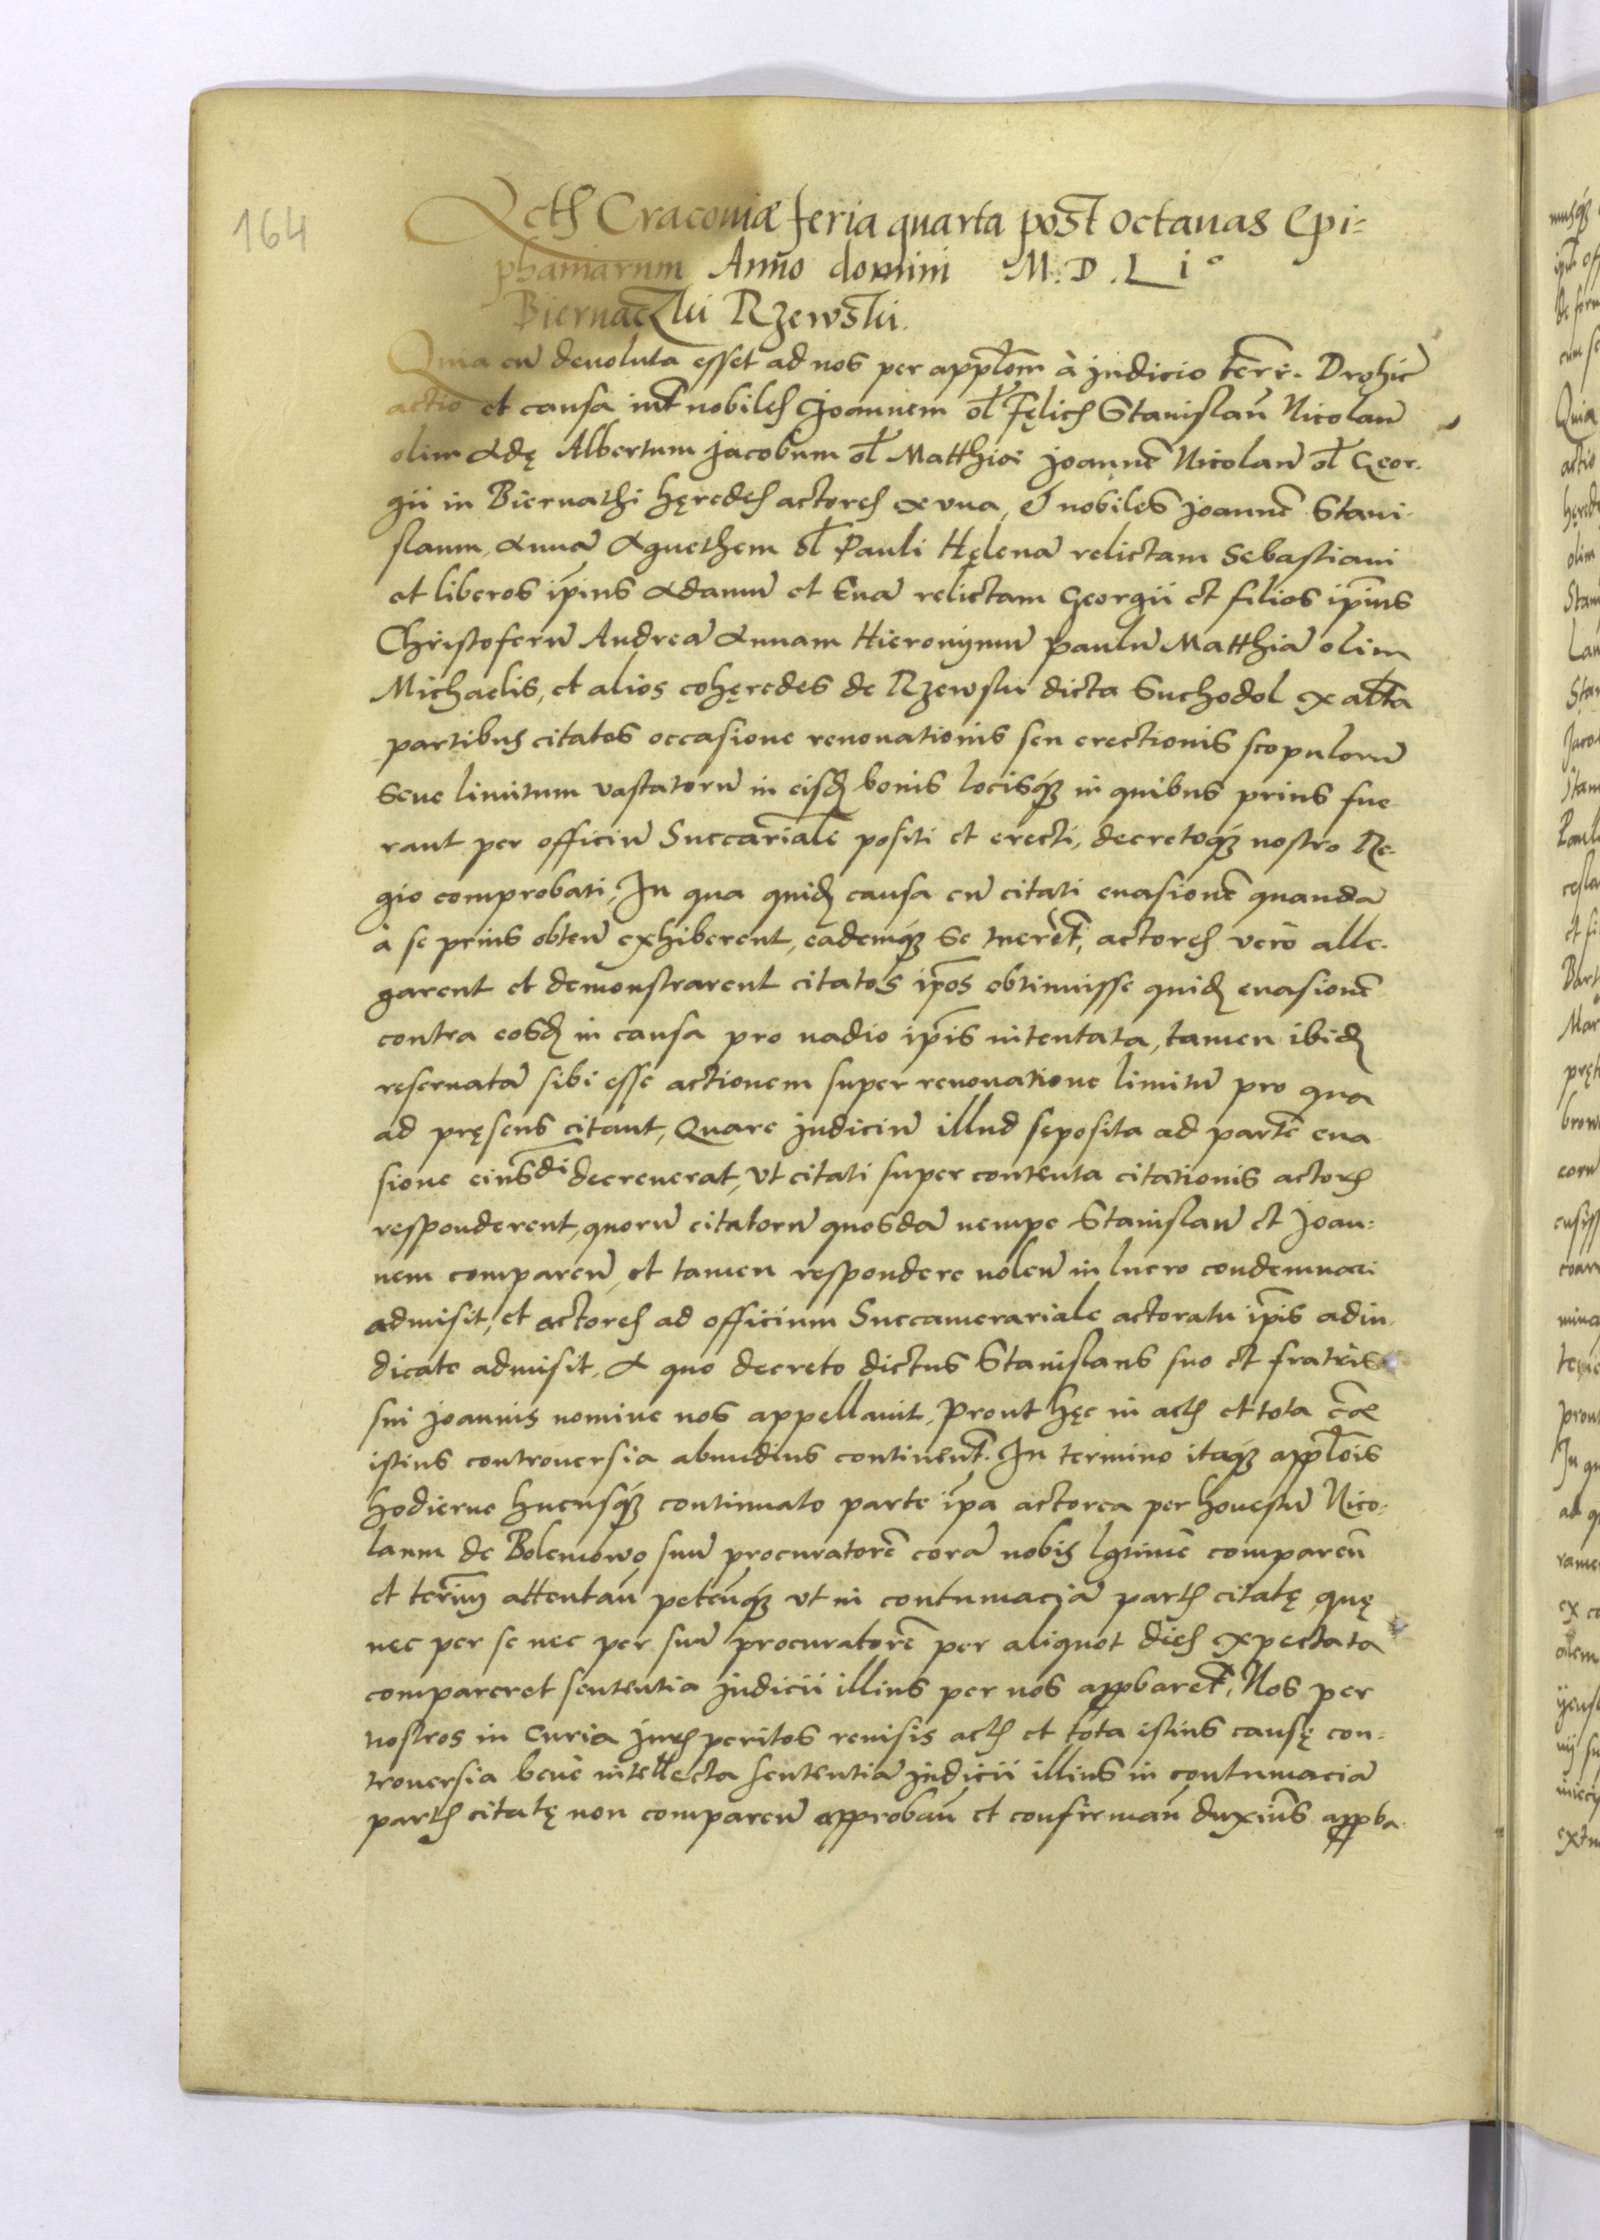 164
Acta Cracoviæ feria quarta post octauas Epi=
phaniarum Anno domini M.D.Li°
Biernaczki Rzewski.
Quia cū deuoluta esset ad nos per applōnē à Judicio terrē. Drohic̄
actio et causa int̄ nobiles Joannem ol̄ Fęlicis Stanislaū Nicolaū
olim Adę Albertum Jacobum ol̄ Matthiæ Joannē Nicolaū ol̄ Geor-
gii in Biernathi hęredes actores ex vna, & nobiles Joannē Stani-
slaum, Annā Agnethem ol̄ Pauli Hęlenā relictam Sebastiani
et liberos ip̄ius Adamū et Euā relictam Georgii et filios ip̄ius
Christoferū Andreā Annam Hieronymū Paulū Matthiā olim
Michaelis, et alios cohęredes de Rzewski dicta Suchodol ex alt̄a
partibus citatos occasione renouationis seu erectionis scopulorū
seue limitum vastatorū in eisdē bonis locisq₃ in quibus prius fue
rant per officiū Succam̄riale positi et erecti, decretoq₃ nostro Re-
gio comprobati, In qua quidē causa cū citati euasionē quandā
à se prius obten̄ exhiberent, eademq₃ se tuerēt, actores verò alle-
garent et demonstrarent citatos ip̄os obtinuisse quidē euasionē
contra eosdē in causa pro vadio ip̄is intentata, tamen ibidē
reseruatā sibi esse actionem super renouatione limitū pro qua
ad pręsens citant, Quare Judiciū illud seposita ad partē eua
sione eiusdi decreuerat, vt citati super contenta citationis actorū
responderent, quorū citatorū quosdā nempe Stanislaū et Joan=
nem comparen̄, et tamen respondere nolen̄ in lucro condemnari
admisit, et actores ad officium Succamerariale actoratu ip̄is adiu-
dicato admisit, A quo decreto dictus Stanislaus suo et fratris
sui Joannis nomine nos appellauit, Prout hęc in actis et tota c̄æ
istius controuersia abundius continent̄. In termino itaq₃ applōis
hodierne hucusq₃ continuato parte ip̄a actorea per honestū Nico-
laum de Bolemowo suū procuratorē corā nobis lgtimē comparen̄
et term̄ attentan̄ petenq₃ vt in contumaciā partis citatę quę
nec per se nec per suū procuratorē per aliquot dies expectata
compareret sententia Judicii illius per nos appbaret̄, Nos per
nostros in Curia Juris peritos reuisis actis et tota istius causę con=
trouersia benè intellecta sententiā Judicii illius in contumaciā
partis citatę non comparen̄ approban̄ et confirman̄ duxim̄s appba-